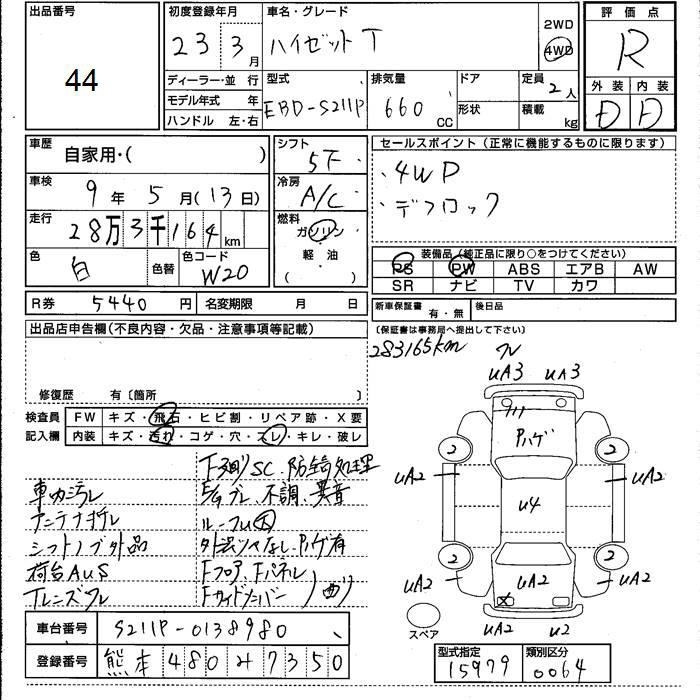 出品番号
44
初度登録年月
23 3月
車名・グレード
ハイゼット T
2WD
4WD
評価点
R
ディーラー・並行
モデル年式 年
ハンドル 左・右
型式
EBD-S211P
排気量
660 CC
ドア
形状
定員
2人
積載 kg
外装 内装
D D
車歴
自家用・( )
シフト
5下
セールスポイント(正常に機能するものに限ります)
・4WD
・デフロック
車検
9年 5月(13日)
冷房
A/C
走行
28万3千164km
燃料
ガソリン
・
軽油
( )
色
白
色替
色コード
W20
装備品(純正品に限り○をつけてください)
PS PW ABS エアB AW
SR ナビ TV カワ
R券 5440円
名変期限 月 日
新車保証書 有・無
後日品
(保証書は事務局へ提出して下さい)
出品店申告欄(不良内容・欠品・注意事項等記載)
283165km
修復歴 有〔箇所 〕
検査員
記入欄
FW キズ・飛石・ヒビ割・リペア跡・X要
内装 キズ・汚れ・コゲ・穴・スレ・キレ・破レ
車内汚レ
シフトノブ外品
荷台AUS
SC 防錆処理
不調、異音
外装ツヤなし、Pハゲ有
Fフロア、Fパネル
Fサイドメンバー
UA3 UA3
Pハゲ
2 2
UA2 UA2
U4
2 2
UA2 UA2 UA2
UA2 U2
スペア
車台番号 S211P-0138980
登録番号 熊本 480 み 7350
型式指定
15979
類別区分
0064